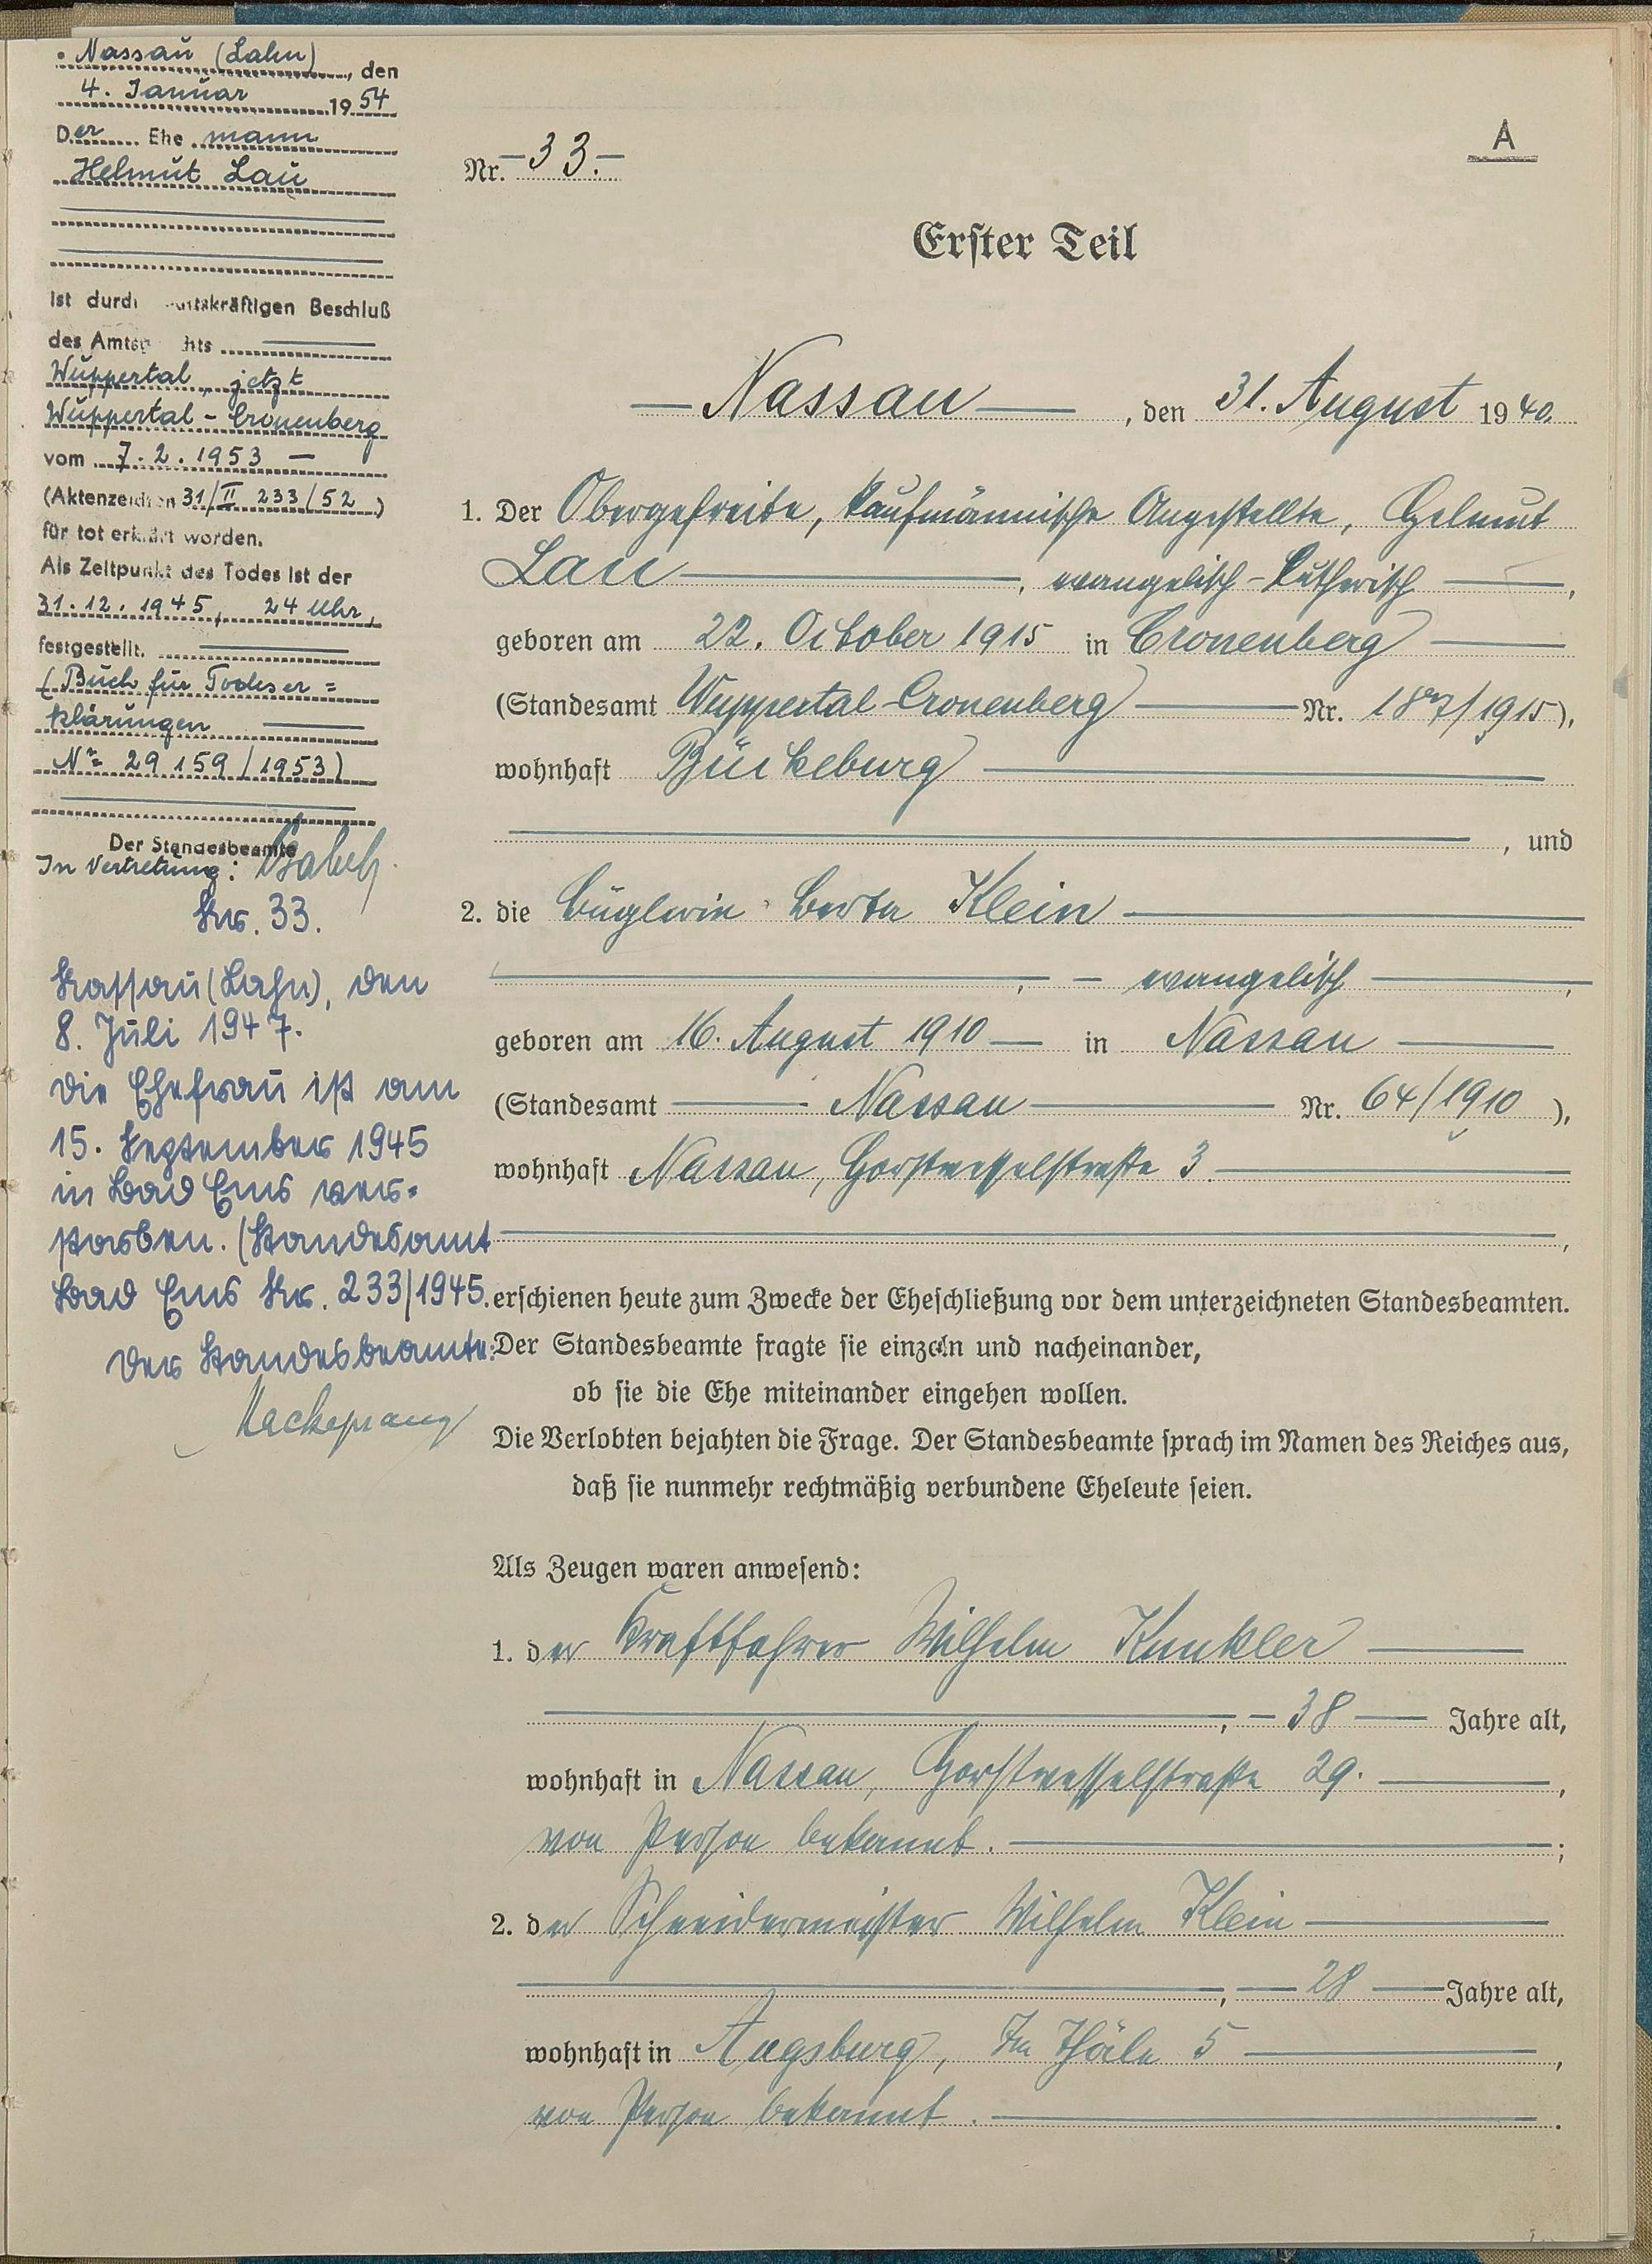 Nassau (Lahn), den
4. Januar 1954
Der Ehemann
Helmut Lau
Ist durch kräftigen Beschluß
des Amtsg hts
Wuppertal, jetzt
Wuppertal-Cronenberg
vom 7.2.1953 —
(Aktenzeichen 31/II 233/52)
für tot erklärt worden.
Als Zeitpunkt des Todes ist der
31.12.1945, 24 Uhr,
festgestellt.
(Buch für Todeser=
klärungen
Nr. 29 159/1953)
Der Standesbeamte
In Vertretung:
Nr. 33.
Nassau (Lahn), den
8. Juli 1947.
Die Ehefrau ist am
15. September 1945
in Bad Ems ver=
storben. (Standesamt
Bad Ems Nr. 233/1945.
Der Standesbeamte:
Mackeprang
A
Nr. – 33. –
Erster Teil
— Nassau —, den 31. August 1940.
1. Der Obergefreite, kaufmännische Angestellte, Helmut
Lau —, evangelisch-lutherisch —,
geboren am 22. October 1915 in Cronenberg —
(Standesamt Wuppertal-Cronenberg — Nr. 187/1915),
wohnhaft Bückeburg —
—, und
2. die Büglerin Berta Klein —
—, — evangelisch —,
geboren am 16. August 1910 — in Nassau —
(Standesamt — Nassau — Nr. 64/1910),
wohnhaft Nassau, Horstwesselstraße 3. —
—,
erschienen heute zum Zwecke der Eheschließung vor dem unterzeichneten Standesbeamten.
Der Standesbeamte fragte sie einzeln und nacheinander,
ob sie die Ehe miteinander eingehen wollen.
Die Verlobten bejahten die Frage. Der Standesbeamte sprach im Namen des Reiches aus,
daß sie nunmehr rechtmäßig verbundene Eheleute seien.
Als Zeugen waren anwesend:
1. der Kraftfahrer Wilhelm Kunkler —
—, — 38 — Jahre alt,
wohnhaft in Nassau, Horstwesselstraße 29. —,
von Person bekannt. —;
2. der Schneidermeister Wilhelm Klein —
—, — 28 — Jahre alt,
wohnhaft in Augsburg, Im Thäle 5 —,
von Person bekannt. —.